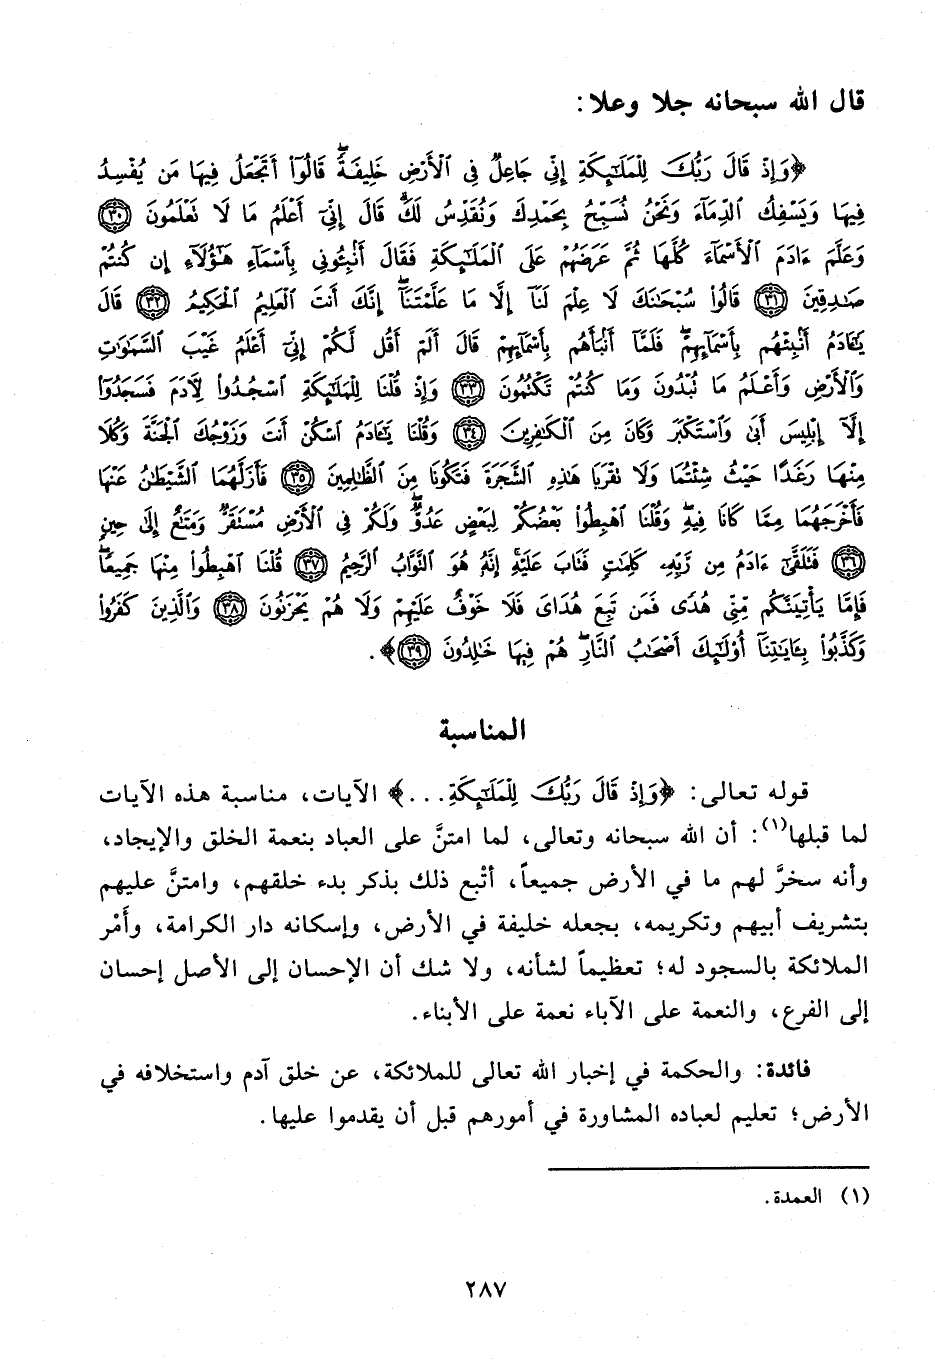 قال الله سبحانه جلا وعلا:
﴿وَإِذْ قَالَ رَبُّكَ لِلْمَلَٰٓئِكَةِ إِنِّي جَاعِلٌ فِي ٱلْأَرْضِ خَلِيفَةًۖ قَالُوٓا۟ أَتَجْعَلُ فِيهَا مَن يُفْسِدُ
فِيهَا وَيَسْفِكُ ٱلدِّمَآءَ وَنَحْنُ نُسَبِّحُ بِحَمْدِكَ وَنُقَدِّسُ لَكَۖ قَالَ إِنِّيٓ أَعْلَمُ مَا لَا تَعْلَمُونَ ﴿٣٠﴾
وَعَلَّمَ ءَادَمَ ٱلْأَسْمَآءَ كُلَّهَا ثُمَّ عَرَضَهُمْ عَلَى ٱلْمَلَٰٓئِكَةِ فَقَالَ أَنۢبِـُٔونِي بِأَسْمَآءِ هَٰٓؤُلَآءِ إِن كُنتُمْ
صَٰدِقِينَ ﴿٣١﴾ قَالُوا۟ سُبْحَٰنَكَ لَا عِلْمَ لَنَآ إِلَّا مَا عَلَّمْتَنَآۖ إِنَّكَ أَنتَ ٱلْعَلِيمُ ٱلْحَكِيمُ ﴿٣٢﴾ قَالَ
يَٰٓـَٔادَمُ أَنۢبِئْهُم بِأَسْمَآئِهِمْۖ فَلَمَّآ أَنۢبَأَهُم بِأَسْمَآئِهِمْ قَالَ أَلَمْ أَقُل لَّكُمْ إِنِّيٓ أَعْلَمُ غَيْبَ ٱلسَّمَٰوَٰتِ
وَٱلْأَرْضِ وَأَعْلَمُ مَا تُبْدُونَ وَمَا كُنتُمْ تَكْتُمُونَ ﴿٣٣﴾ وَإِذْ قُلْنَا لِلْمَلَٰٓئِكَةِ ٱسْجُدُوا۟ لِأَدَمَ فَسَجَدُوٓا۟
إِلَّآ إِبْلِيسَ أَبَىٰ وَٱسْتَكْبَرَ وَكَانَ مِنَ ٱلْكَٰفِرِينَ ﴿٣٤﴾ وَقُلْنَا يَٰٓـَٔادَمُ ٱسْكُنْ أَنتَ وَزَوْجُكَ ٱلْجَنَّةَ وَكُلَا
مِنْهَا رَغَدًا حَيْثُ شِئْتُمَا وَلَا تَقْرَبَا هَٰذِهِ ٱلشَّجَرَةَ فَتَكُونَا مِنَ ٱلظَّٰلِمِينَ ﴿٣٥﴾ فَأَزَلَّهُمَا ٱلشَّيْطَٰنُ عَنْهَا
فَأَخْرَجَهُمَا مِمَّا كَانَا فِيهِۖ وَقُلْنَا ٱهْبِطُوا۟ بَعْضُكُمْ لِبَعْضٍ عَدُوٌّۖ وَلَكُمْ فِي ٱلْأَرْضِ مُسْتَقَرٌّ وَمَتَٰعٌ إِلَىٰ حِينٍ
﴿٣٦﴾ فَتَلَقَّىٰٓ ءَادَمُ مِن رَّبِّهِۦ كَلِمَٰتٍ فَتَابَ عَلَيْهِۚ إِنَّهُۥ هُوَ ٱلتَّوَّابُ ٱلرَّحِيمُ ﴿٣٧﴾ قُلْنَا ٱهْبِطُوا۟ مِنْهَا جَمِيعًاۖ
فَإِمَّا يَأْتِيَنَّكُم مِّنِّي هُدًى فَمَن تَبِعَ هُدَايَ فَلَا خَوْفٌ عَلَيْهِمْ وَلَا هُمْ يَحْزَنُونَ ﴿٣٨﴾ وَٱلَّذِينَ كَفَرُوا۟
وَكَذَّبُوا۟ بِـَٔايَٰتِنَآ أُو۟لَٰٓئِكَ أَصْحَٰبُ ٱلنَّارِۖ هُمْ فِيهَا خَٰلِدُونَ ﴿٣٩﴾﴾.
المناسبة
قوله تعالى: ﴿وَإِذْ قَالَ رَبُّكَ لِلْمَلَٰٓئِكَةِ...﴾ الآيات، مناسبة هذه الآيات
لما قبلها(١): أن الله سبحانه وتعالى، لما امتنَّ على العباد بنعمة الخلق والإيجاد،
وأنه سخرَّ لهم ما في الأرض جميعاً، أتْبع ذلك بذكر بدء خلقهم، وامتنَّ عليهم
بتشريف أبيهم وتكريمه، بجعله خليفة في الأرض، وإسكانه دار الكرامة، وأمْر
الملائكة بالسجود له؛ تعظيماً لشأنه، ولا شك أن الإحسان إلى الأصل إحسان
إلى الفرع، والنعمة على الآباء نعمة على الأبناء.
فائدة: والحكمة في إخبار الله تعالى للملائكة، عن خلق آدم واستخلافه في
الأرض؛ تعليم لعباده المشاورة في أمورهم قبل أن يقدموا عليها.
(١) العمدة.
٢٨٧